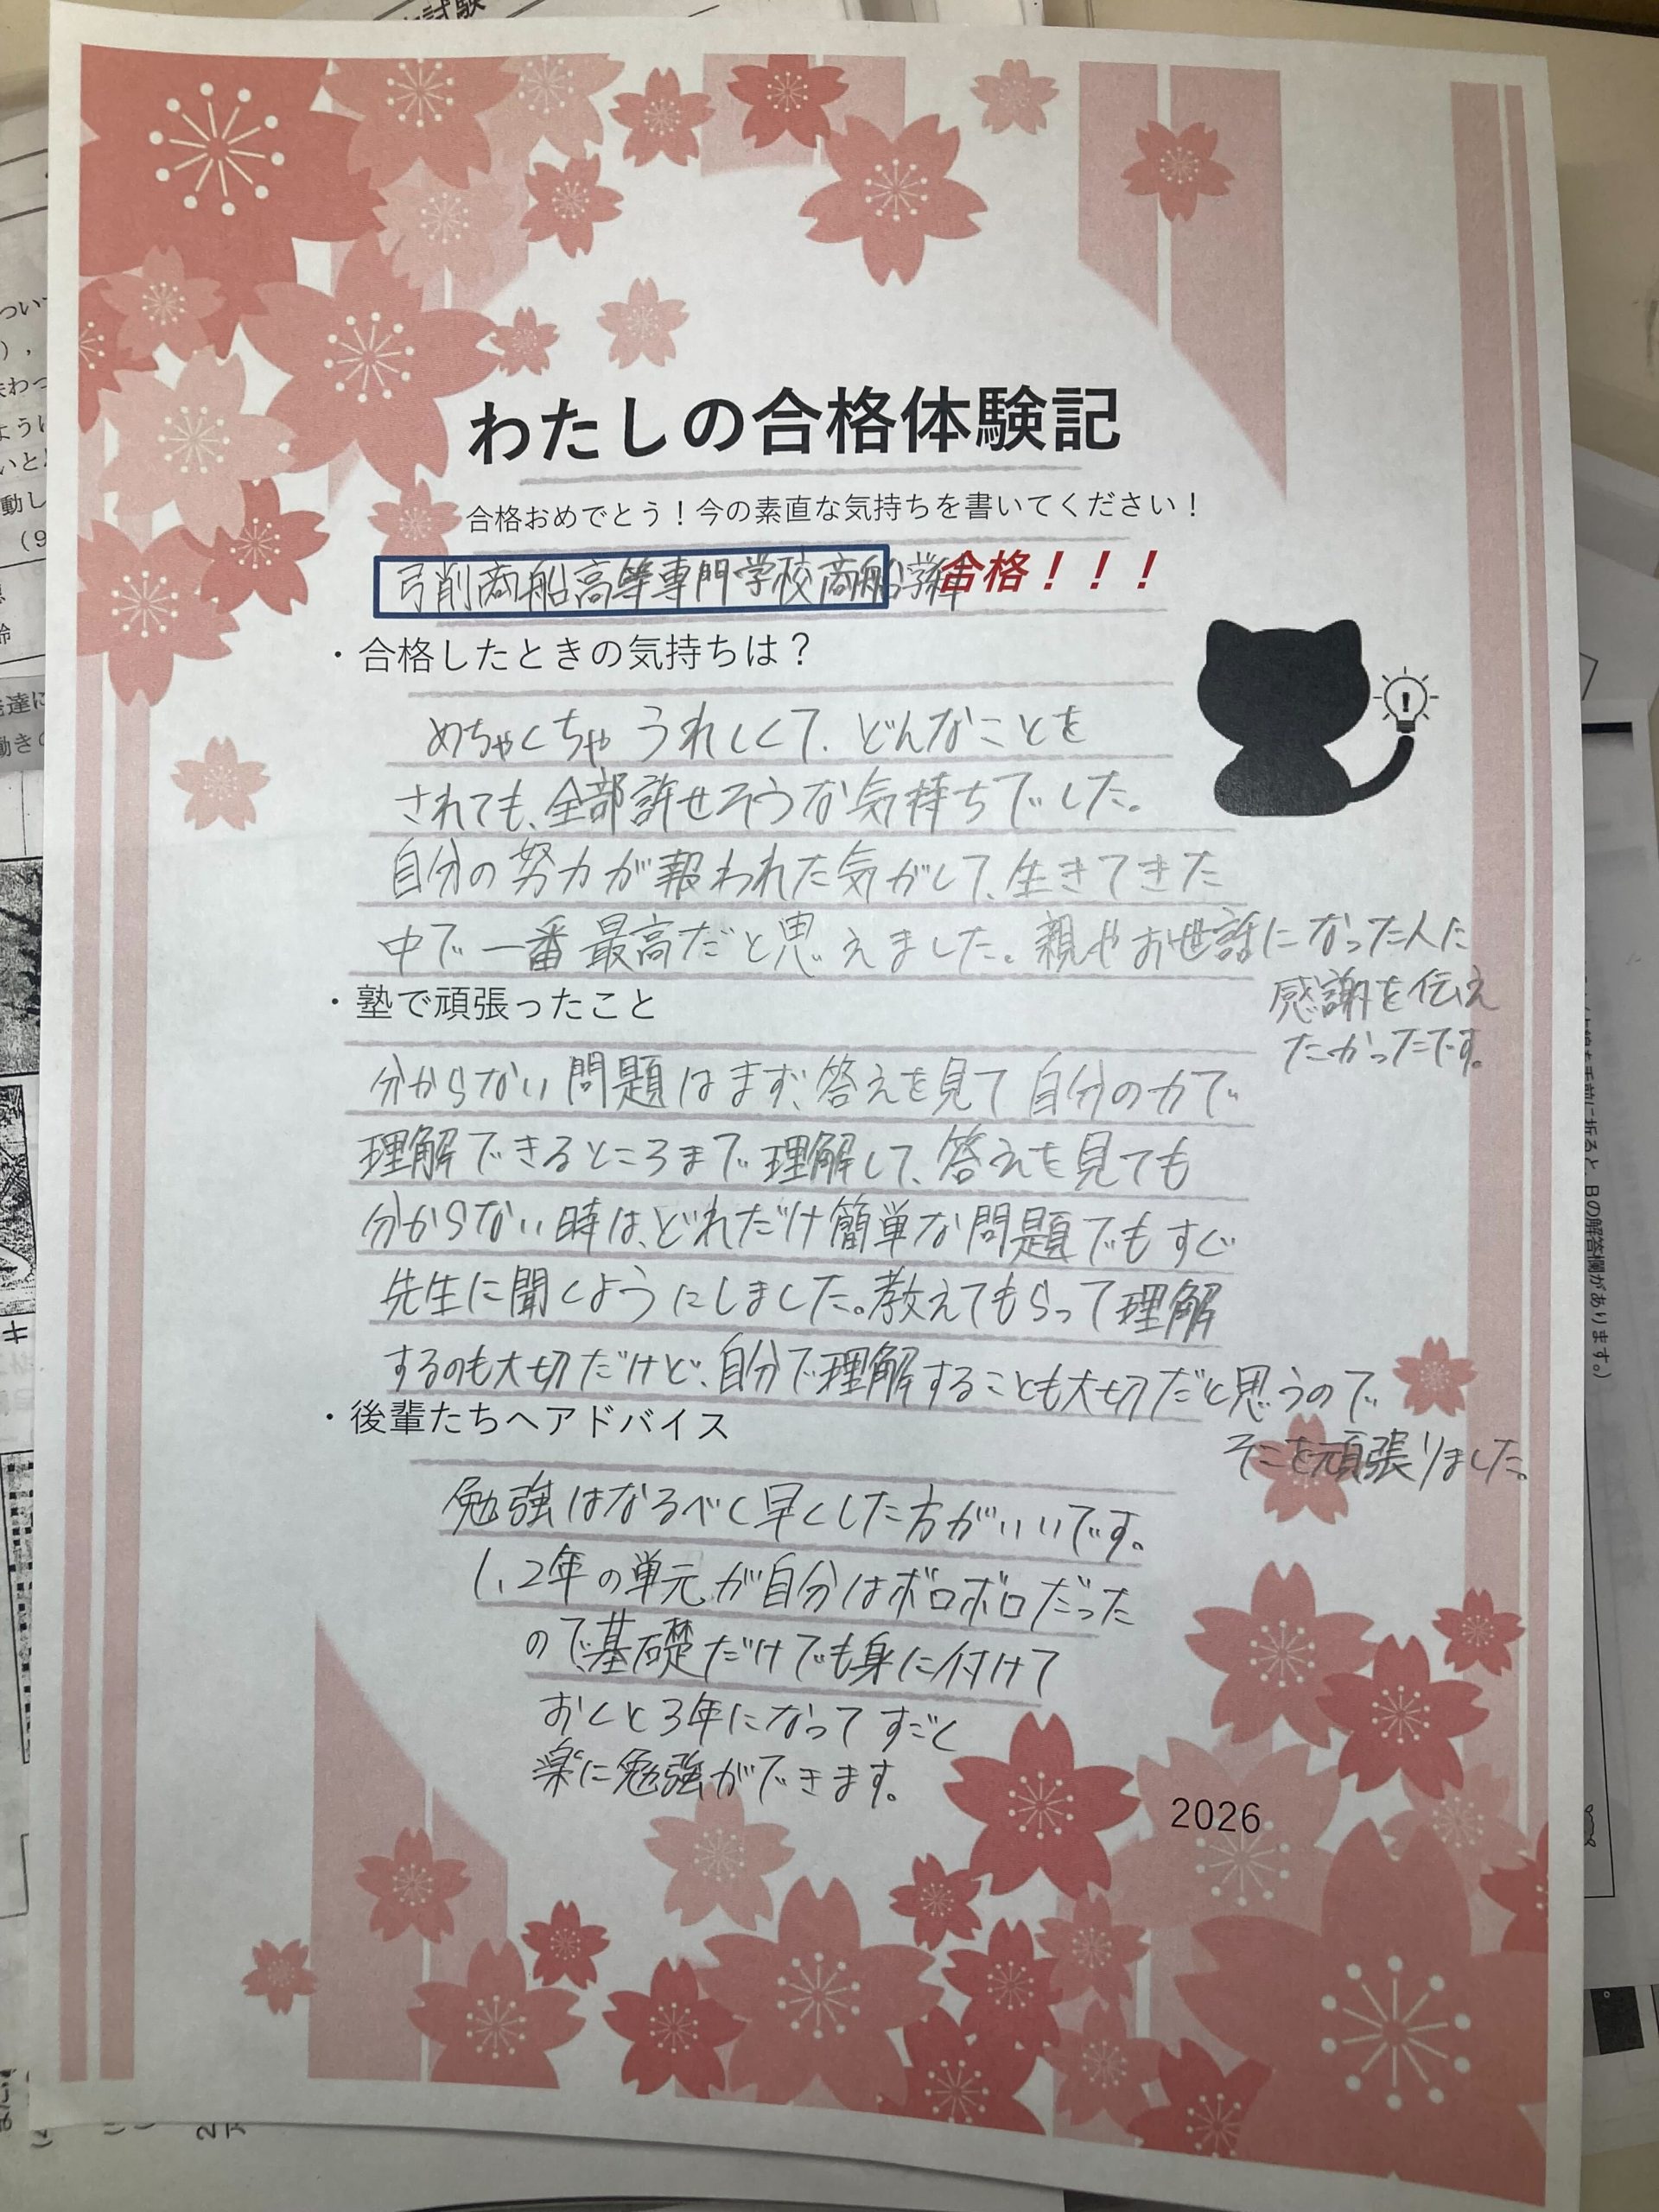 わたしの合格体験記
合格おめでとう！今の素直な気持ちを書いてください！
弓削商船高等専門学校商船学科合格！！！
・合格したときの気持ちは？
めちゃくちゃうれしくて、どんなことを
されても、全部許せそうな気持ちでした。
自分の努力が報われた気がして、生きてきた
中で一番最高だと思えました。親やお世話になった人に
感謝を伝え
たかったです。
・塾で頑張ったこと
分からない問題はまず、答えを見て自分の力で
理解できるところまで理解して、答えを見ても
分からない時は、どれだけ簡単な問題でもすぐ
先生に聞くようにしました。教えてもらって理解
するのも大切だけど、自分で理解することも大切だと思うので
そこを頑張りました。
・後輩たちへアドバイス
勉強はなるべく早くした方がいいです。
1、2年の単元が自分はボロボロだった
ので、基礎だけでも身に付けて
おくと3年になってすごく
楽に勉強ができます。
2026
Bの解答欄があります。）